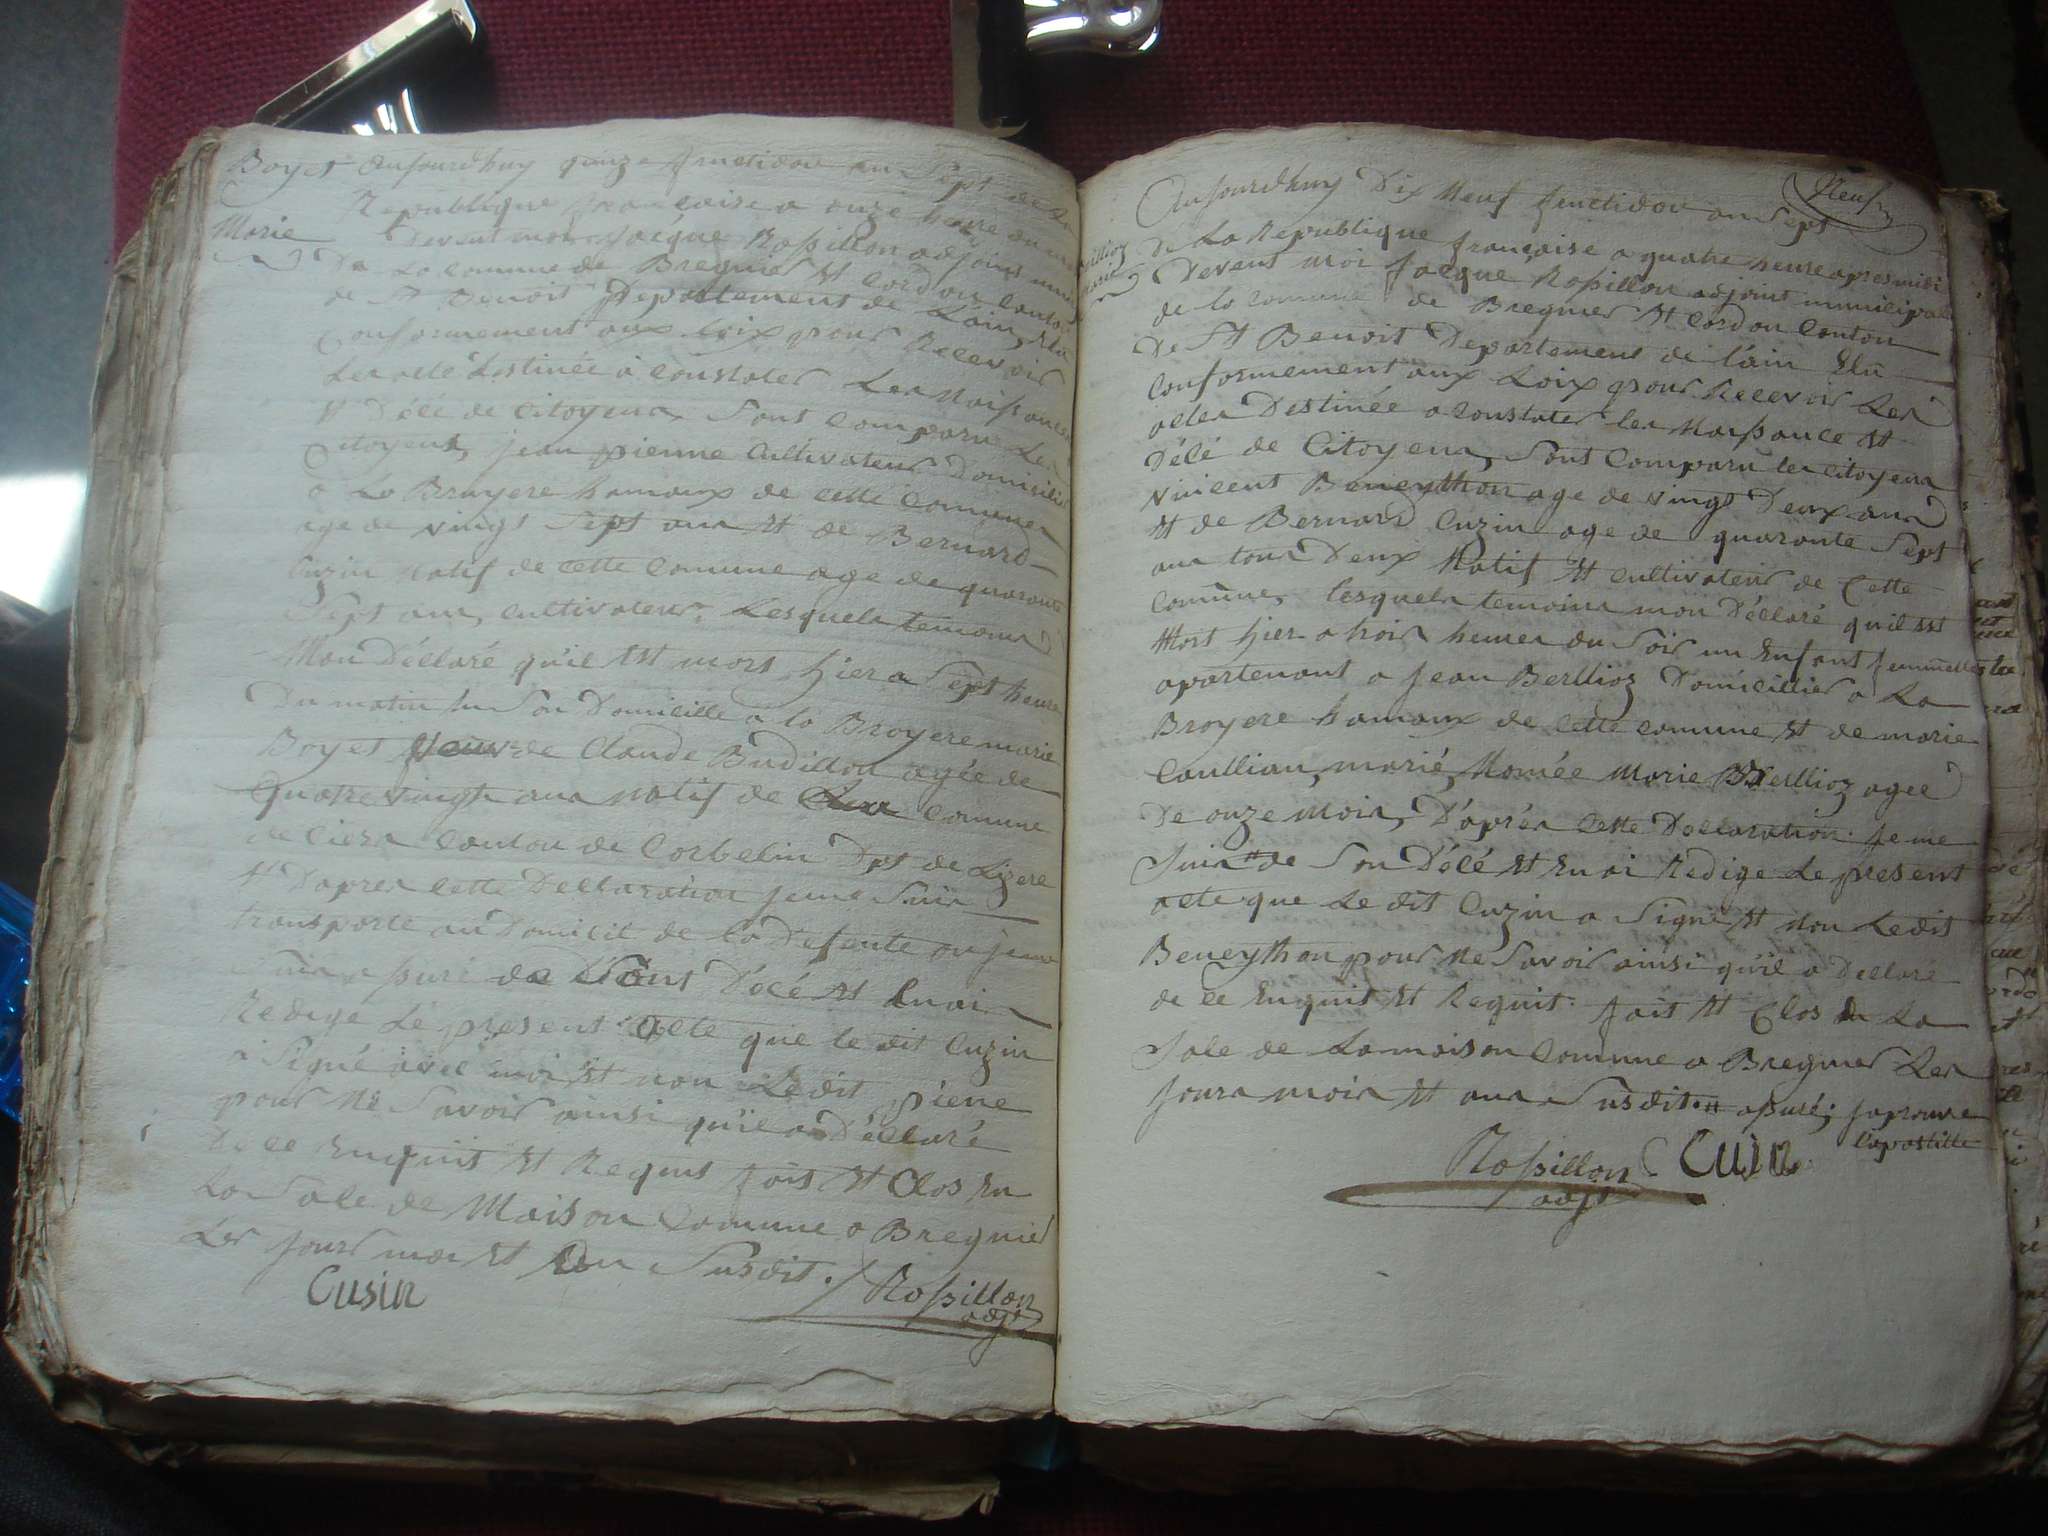 Boyet
Marie
Aujourdhuy quinze fructidor an Sept de la
Republique francaise a onze heure du
Devent moi Jacque Rossillon adjoint
De La Commune de Bregnier Et Cordon Canton
de St Benoit Departement de L'ain, Elu
Conformement aux loix pour Recevoir
Les acte destinée a Constater Les Naissance
Et Décé de Citoyens, Sont Comparu Les
Citoyens, jean pienne Cultivateur Domicilie
a La Bruyere hamaux de cette Commune
age de vingt Sept ans Et de Bernard
Cuzin Natif de cette Comune age de quarante
Sept ans, Cultivateur, Lesquels temoins
Mon Déclaré qu'il Est mort hier a Sept heure
Du matin En Son Domicille a la Broyere marie
Boyet veuve de Claude Budillon agée de
Quatre vingt ans natif de Commune
de Ciers Canton de Corbelin Dpt de Lizere
Et D'apres Cette Declaration Jeme Suis
transporte au Domicil de la Defente ou jeme
Suis assuré de Sont Décé Et Enai
Redige Le present acte que le dit Cuzin
a Signé avec moi Et non Ledit piene
pour Ne Savoir ainsi qu'il a Déclaré
De ce Enquit Et Requis fait Et Clos En
La Sale de Maison Comune a Bregnier
Les jour moi Et an Susdit.
Cusin
Rossillon
adjt
Neuf
Berllioz
Marie
Aujourdhuy Dix Neuf fructidor an Sept
De La Republique francaise a quatre heure apres midi
Devent moi Jacque Rossillon adjoint municipal
de la Comune de Bregnier Et Cordon Canton
De St Benoit Departement de l'ain Elu
Conformement aux Loix pour Recevoir Les
actes Destinée a Constater les Naissance Et
Décé de Citoyens, Sont Comparu les citoyens
vincent Beneython age de vingt Deux ans
Et de Bernard Cuzin age de quarante Sept
ans tous Deux Natif Et cultivateur de Cette
Comune, lesquels temoins mon Déclaré qu'il Est
Mort hier a trois heures du Soir un Enfant femmelle
apartenant a Jean Berllioz Domicillier a La
Broyere hamaux de cette comune Et de marie
Caullian, marié, Nomée Marie Berllioz agee
De onze mois, D'aprés Cette Declaration Je me
Suis # de Son Décé Et Enai Redige Le present
acte que Le dit Cuzin a Signé Et non Ledit
Beneython pour Ne Savoir ainsi qu'il a Declaré
de ce Enquit Et Requit. fait Et Clos La
Sale de La maison Comune a Bregnier Les
jours mois Et ans Susdit. # assuré; japrouve
l'apostille
Rossillon
adjt
Cusin